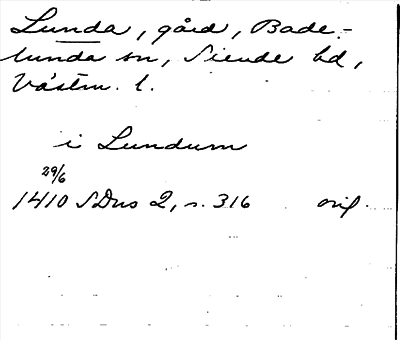 Lunda, gård, Bade-
lunda sn, Siende hd,
Västm. l.
i Lundum
29/6
1410 SDns 2, s. 316 orig.